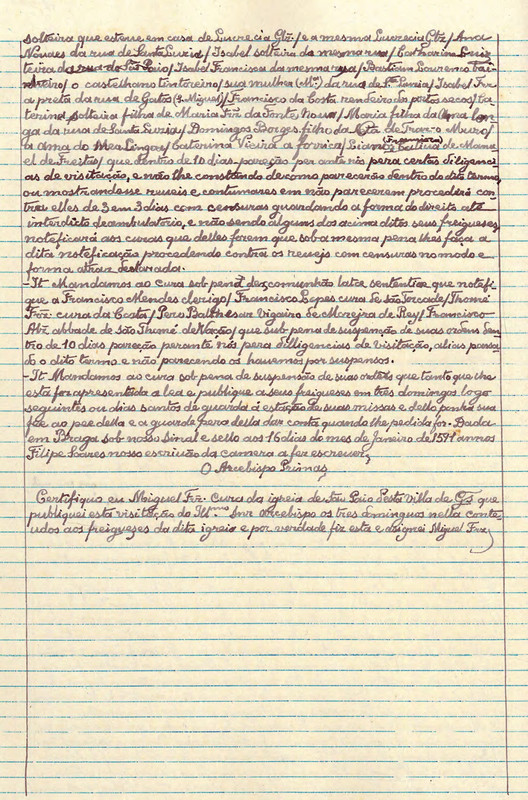 solteira que esteve em casa de Lucrecia Glz./e a mesma Lucrecia Glz/Ana
Novaes da rua de Santa Luzia/Isabel solteira da mesma rua/Catharina Luiz
teira da rua de São Paio/Isabel Francisca da mesma rua/Bastiam Lourenço
o castelhano tintoreiro/sua mulher (Mª.) da rua de Sta Luzia/Isabel Frz
a preta da rua de Gatos (S. Miguel)/Francisco da Costa rendeiro dos portos secos/Ca
terina, solteira filha de Maria Frz da Fonte Nova/Maria filha da Ana Lon
ga da rua de Santa Luzia/Domingos Borges filho da de Tras-o-Muro/
a Ana do Mea Lingoa/Caterina Vieira a forrica/ de Mano
el de Freitas/que dentro de 10 dias pareção perante nós pera certas diligenci
as de visitação, e não lhe constando de como pareceram dentro do dito termo,
ou mostrandose reveis e contumares em não parecerem procederá con
tra elles de 3 em 3 dias com censuras guardando a forma do direito até
interdicto deambulatorio, e não sendo alguns dos acima ditos seus freigueses
noteficará aos curas que delles forem que sob a mesma pena lhes faça a
dita noteficação procedendo contra os reveis com censuras no modo e
forma atras declarada.
-It. Mandamos ao cura sob pena d'excomunhão latae sententiae que notefi
que a Francisco Mendes clerigo/Francisco Lopes cura de são Torcade/Thomé
Frz. cura da Costa/Pero Balthesar Vigairo de Moreira de Rey/Francisco
Abz. abbade de são Thomé de/que sub pena de suspenção de suas ordens den
tro de 10 dias pareção perante nós pera diligencias de visitação, alias passa-
do o dito termo e não parecendo os havemos por suspensos.
-It. Mandamos ao cura sob pena de suspensão de suas ordens que tanto que lhe
esta for apresentada a lea e publique a seus freigueses em tres domingos logo
seguintes ou dias santos de guarda á estação de suas missas e dello ponha sua
fée ao pee della e a guarde pera della dar conta quando lhe pedida for. Dada
em Braga sob nosso sinal e sello aos 16 dias do mes de Janeiro de 1591 annos
Filipe Soares nosso escrivão da camera a fez escrever,
O Arcebispo Primas,
Certifiquo eu Miguel Frz. cura da igreia de São Paio desta Villa de Gs que
publiquei esta visitação do Illmo. Snr Arcebispo os tres dominguos nella conte-
udos aos freigueses da dita igreia e por verdade fiz esta e asignei Miguel Frz